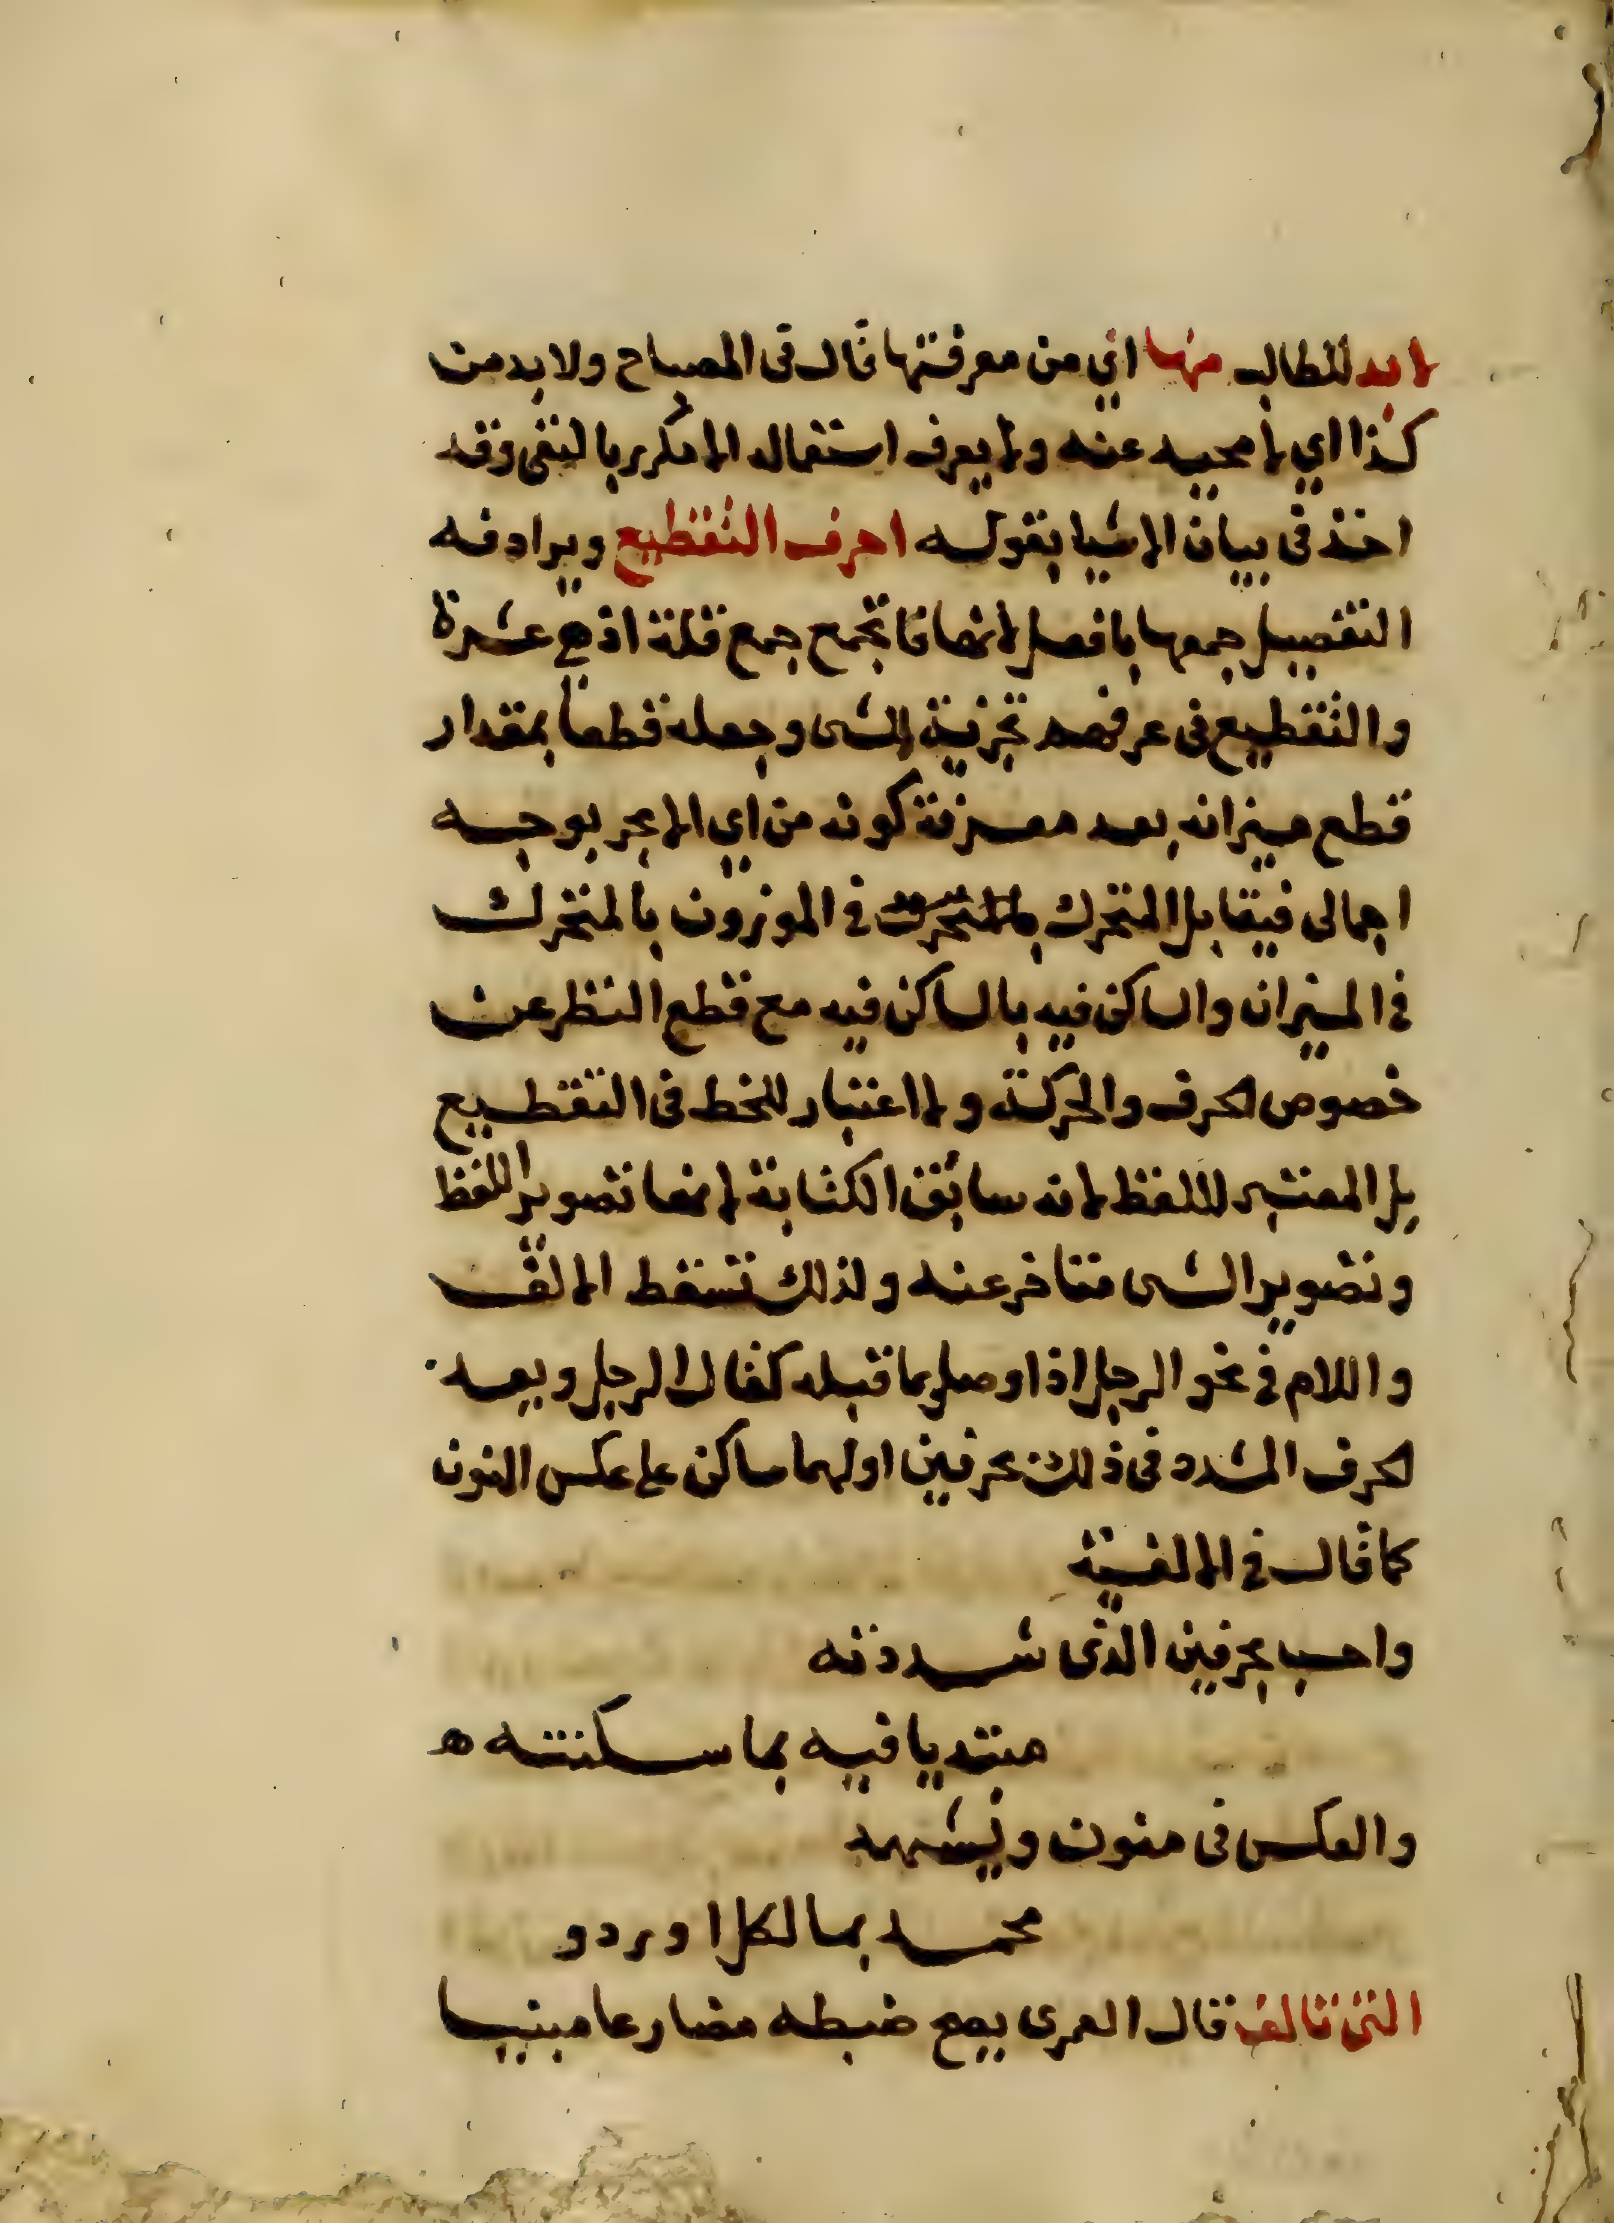 لابد للطالب منها اي من معرفتها قال في المصباح ولابد من
كذا اي لا محيد عنه ولا يعرف استعماله الا مكررا بالنفي وقد
اخذ في بيان الاشيا بقوله احرف التقطيع ويرادفه
التفصيل جمعها بافعل لانها قا تجمع جمع قلة اذ هي عشرة
والتقطيع في عرفهم تجزية الشي وجعله قطعا بمقدار
قطع ميزانه بعد معرفة كونه من اي الابحر بوجه
اجمالي فيقابل المتحرك في الموزون بالمتحرك
في الميزان والساكن فيه بالساكن فيه مع قطع النظر عن
خصوص الحرف والحركة ولا اعتبار للخط في التقطيع
بل المعتبر اللفظ لانه سابق الكتابة لانها تصوير اللفظ
وتصوير الشي متاخر عنه ولذلك تسقط الالف
واللام في نحو الرجل اذا وصل بما قبله كقال الرجل ويعد
الحرف المشدد في ذلك بحرفين اولهما ساكن على عكس المنون
كما قال في الالفية
واحسب بحرفين الذي شددته
مبتديا فيه بما سكنته ه
والعكس في منون ويشهد
محمد بما لكل اوردو
التي تالف قال الغزي يصح ضبطه مضارعا مبنيا